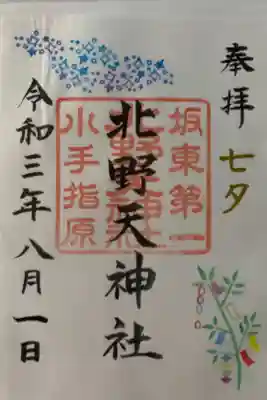 奉拝
七夕
坂東第一
北野天神社
小手指原
令和三年八月一日